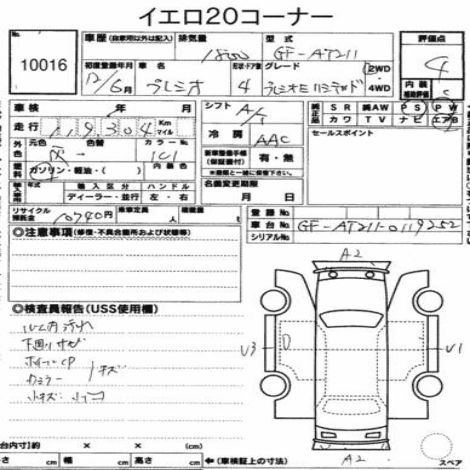 イエロ20コーナー
No. 10016
車歴(自家用以外は記入) 排気量 型式 評価点
1800 GF-AT211 4
初度登録年月 車名 形状・ドア数 グレード 2WD 4WD
12/6月 プレミオ 4
内装
車検 年 月
走行 119304 Km マイル
シフト A/T
冷房 AAC
純正品 SR 純AW PS PW
カワ TV ナビ エアB
セールスポイント
外色 元色 色替 カラーNo. 内装色
1C1
燃料 ガソリン・軽油・( )
有・無
年式 輸入区分 ハンドル
ディーラー・並行 左・右
名義変更期限
月 日
リサイクル預託金 10740円 車車定員 人 積載量
登録No.
車台No. GF-AT211-0119252
シリアルNo.
◎注意事項(修復・不具合箇所および状態等)
◎検査員報告(USS使用欄)
ルーム内汚れ
下回りサビ
ホイールCP
Rミラーキズ
小キズ 小凹
A2
U3
U1
A2
スペア
台内寸)約 × × (cm)
さ (cm) 幅 (cm) 高さ (cm) ←(車検証上の寸法)